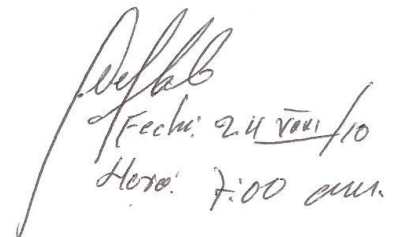 Fecha: 24 VIII/10
Hora: 7:00 am.